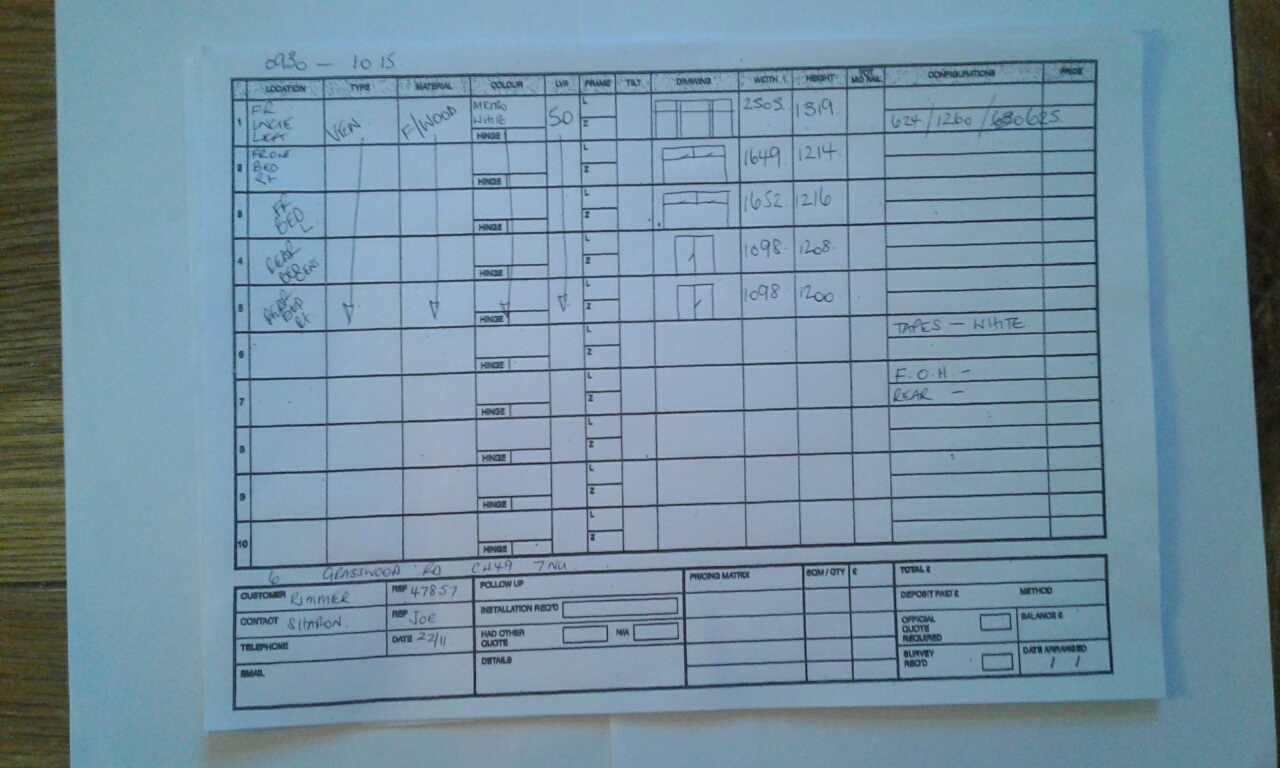 0930 - 10 15
LOCATION TYPE MATERIAL COLOUR LVR FRAME TILT DRAWING WIDTH HEIGHT MID RAIL CONFIGURATIONS PRICE
1 FR VEN F/WOOD WHITE HINGE 50 L Z 2503 1319 624/1260/630625
2 FRONT BED RT HINGE L Z 1649 1214
3 FR BED L HINGE L Z 1652 1216
4 REAR HINGE L Z 1098 1208
5 REAR BED RT HINGE L Z 1098 1200
6 HINGE L Z TAPES - WHITE
7 HINGE L Z F.O.H -
REAR -
8 HINGE L Z
9 HINGE L Z
10 HINGE L Z
6 GRASSWOOD RD CH49 7NU
CUSTOMER RIMMER REF 47857 FOLLOW UP PRICING MATRIX SQM / QTY £ TOTAL £
INSTALLATION REQ'D DEPOSIT PAID £ METHOD
CONTACT SHARON. REP JOE OFFICIAL QUOTE REQUIRED BALANCE £
TELEPHONE DATE 22/11 HAD OTHER QUOTE N/A
EMAIL DETAILS SURVEY REQ'D DATE ARRANGED / /